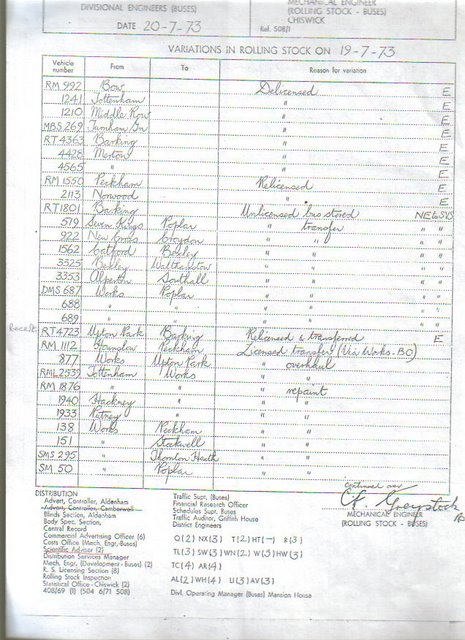 DIVISIONAL ENGINEERS (BUSES)
MECHANICAL ENGINEER
(ROLLING STOCK - BUSES)
CHISWICK
DATE 20-7-73
Ref. 508/1
VARIATIONS IN ROLLING STOCK ON 19-7-73
Vehicle number From To Reason for variation
RM 992 Bow Delicensed E
1241 Tottenham " E
1210 Middle Row " E
MBS 269 Turnham Gn " E
RT 4363 Barking " E
4428 Merton " E
4565 " " E
RM 1550 Peckham Relicensed E
2113 Norwood " E
RT 1801 Barking Unlicensed bus stored
579 Seven Kings Poplar " transfer " "
922 New Cross Croydon " " " "
1562 Catford Bexley " " " "
3325 Bexley Walthamstow " " " "
3353 Alperton Southall " " " "
DMS 687 Works Poplar " " " "
688 " " " " " "
689 " " " " " "
RT 4723 Upton Park Barking Relicensed & transferred E
RM 1112 Hounslow Peckham Licensed transfer (Via Works. BO)
877 Works Upton Park " overhaul
RML 2539 Tottenham Works " "
RM 1876 " " " repaint
1940 Hackney " " "
1933 Putney " " "
138 Works Peckham " "
151 " Stockwell " "
SMS 295 " Thornton Heath " "
SM 50 " Poplar " "
continued over
C.F. Greystock
MECHANICAL ENGINEER
(ROLLING STOCK - BUSES)
DISTRIBUTION
Advert, Controller, Aldenham
Advert, Controller, Camberwell
Blinds Section, Aldenham
Body Spec. Section,
Central Record
Commercial Advertising Officer (6)
Costs Office (Mech. Engr.-Buses)
Scientific Adviser (2)
Distribution Services Manager
Mech. Engr. (Development - Buses) (2)
R. S. Licensing Section (8)
Rolling Stock Inspection
Statistical Office - Chiswick (2)
408/69 (1) (504 6/71 508)
Traffic Supt. (Buses)
Financial Research Officer
Schedules Supt. Buses
Traffic Auditor, Griffith House
District Engineers
Q(2) NX(3) T(2) HT(-) R(3)
TL(3) SW(3) WN(2) W(3) HW(3)
TC(4) AR(4)
AL(2) WH(4) U(3) AV(3)
Divl. Operating Manager (Buses) Mansion House